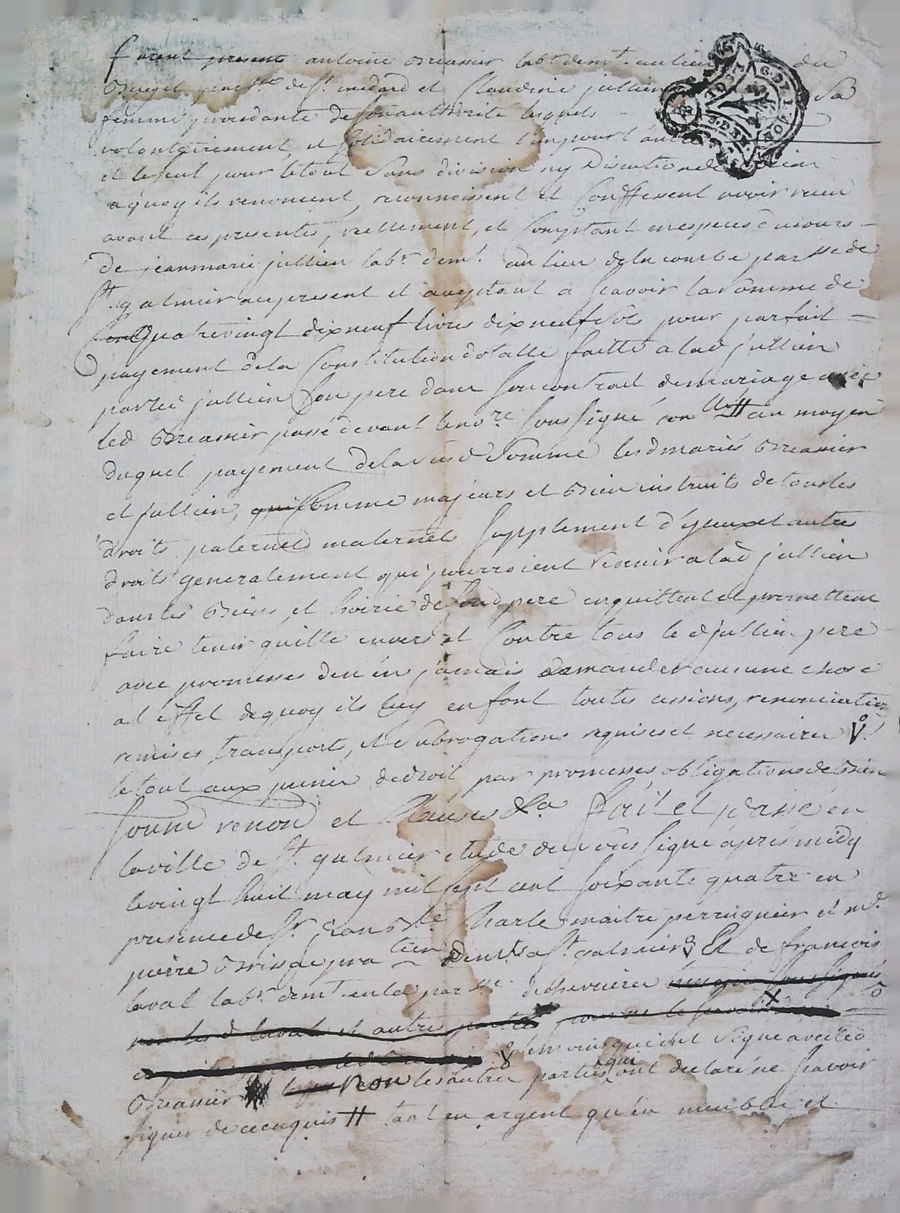 furent presents antoine Breasier labr. demt. au lieu du
paroisse de st. medard et Claudine jullien sa
femme procedante de son authorité lesquels
volontairement et solidairement l'un pour l'autre
et le seul pour le tout sans division ny discution
a quoy ils renoncent, reconnoissent et Confessent avoir receu
avant ces presentes, reellement, et Comptant en especes de cours
de jean marie jullien labr. demt. au lieu de la combe parsse de
st. galmier icy present et acceptant a scavoir la somme de
quatrevingt dix neuf livres dix neuf sols pour parfait
payement de la Constitution dotalle faitte a lad jullien
par led jullien son pere dans son contrat de mariage avec
led Breasier passé devant le nore. soussigné # au moyen
duquel payement de lad somme lesd mariés Breasier
et jullien, qui Comme majeurs et bien instruits de tous les
droits paternels maternels supplement d'yceux et autres
droits generalement qui pourroient revenir a lad jullien
dans les biens et hoirie de sond pere en quittent et promettent
faire tenir quitte envers et Contre tous led jullien pere
avec promesses de n'en jamais demander aucune chose
a l'effet de quoy ils luy en font toutes cessions, renonciations
remises, transport, et subrogations requises et necessaires V
le tout aux peines de droit par promesses obligations de biens
soum renon et Clauses &a fait et passé en
la ville de st. galmier etude du nre soussigné après midy
le vingt huit may mil sept cent soixante quatre en
presence de sr. jean bte. Charles maitre perruquier et mr.
pierre praticien demts. a st. galmier et de francois
laval labr. demt. en la parsse de
temoins qui ont signé avec led
Breasier non les autres parties qui ont declaré ne scavoir
signer de ce enquis # tant en argent qu'en meubles et